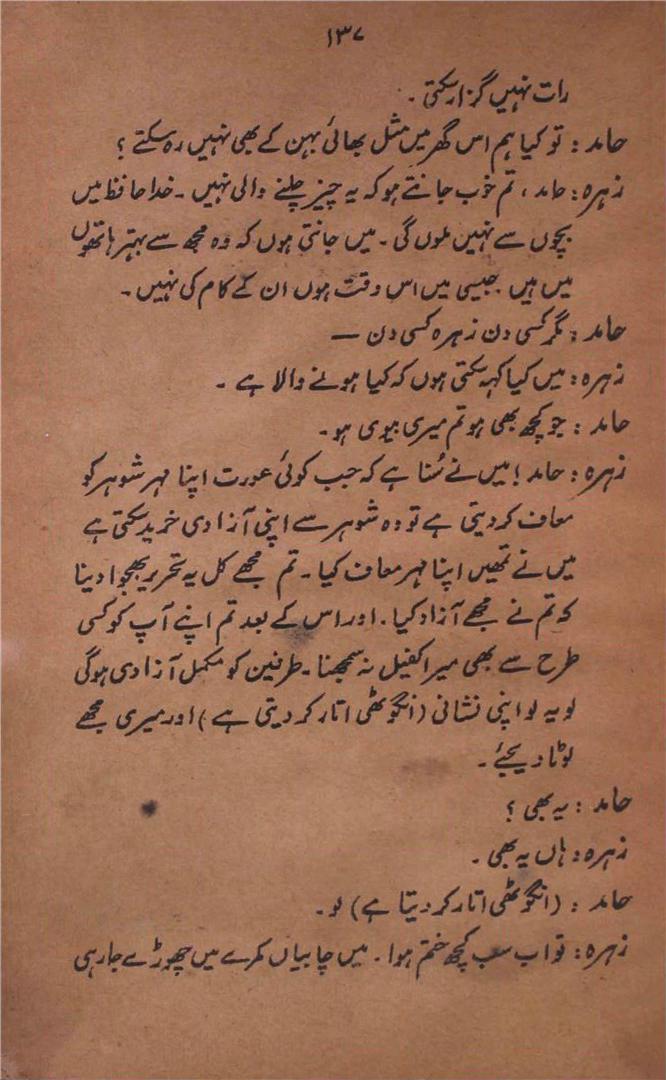 ۱۳۷
رات نہیں گزار سکتی۔
حامد : تو کیا ہم اس گھر میں مثل بھائی بہن کے بھی نہیں رہ سکتے ؟
زہرہ : حامد ، تم خوب جانتے ہو کہ یہ چیز چلنے والی نہیں ۔ خدا حافظ میں
بچوں سے نہیں ملوں گی ۔ میں جانتی ہوں کہ وہ مجھ سے بہتر ہاتھوں
میں ہیں جیسی میں اس وقت ہوں ان کے کام کی نہیں ۔
حامد : مگر کسی دن زہرہ کسی دن —
زہرہ : میں کیا کہہ سکتی ہوں کہ کیا ہونے والا ہے ۔
حامد : جو کچھ بھی ہو تم میری بیوی ہو۔
زہرہ : حامد ! میں نے سُنا ہے کہ جب کوئی عورت اپنا مہر شوہر کو
معاف کر دیتی ہے تو وہ شوہر سے اپنی آزادی خرید سکتی ہے
میں نے تمھیں اپنا مہر معاف کیا ۔ تم مجھے کل یہ تحریر بھجوا دینا
کہ تم نے مجھے آزاد کیا ۔ اور اس کے بعد تم اپنے آپ کو کسی
طرح سے بھی میرا کفیل نہ سمجھنا ۔ طرفین کو مکمل آزادی ہوگی
لو یہ لو اپنی نشانی (انگوٹھی اتار کر دیتی ہے) اور میری مجھے
لوٹا دیجئے ۔
حامد : یہ بھی ؟
زہرہ : ہاں یہ بھی ۔
حامد : (انگوٹھی اتار کر دیتا ہے) لو ۔
زہرہ : تو اب سب کچھ ختم ہوا ۔ میں چابیاں کمرے میں چھوڑے جا رہی